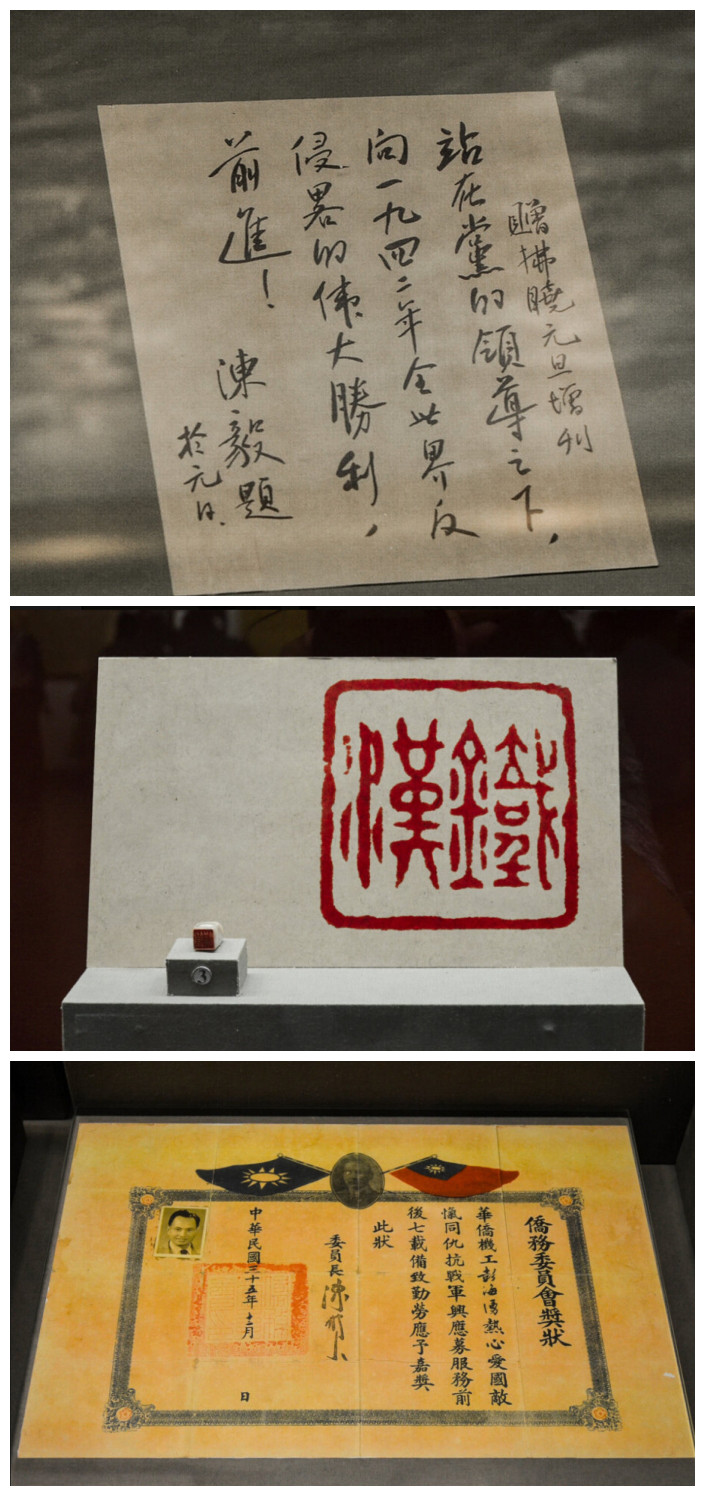 贈拂曉元旦增刊
站在黨的領導之下，
向一九四二年全世界反
侵畧的偉大勝利，
前進！
陳毅題
於元日
鐵漢
僑務委員會獎狀
華僑機工彭海濤熱心愛國敵
愾同仇抗戰軍興應募服務前
後七載備致勤勞應予嘉獎
此狀
委員長
中華民國三十五年十二月
日